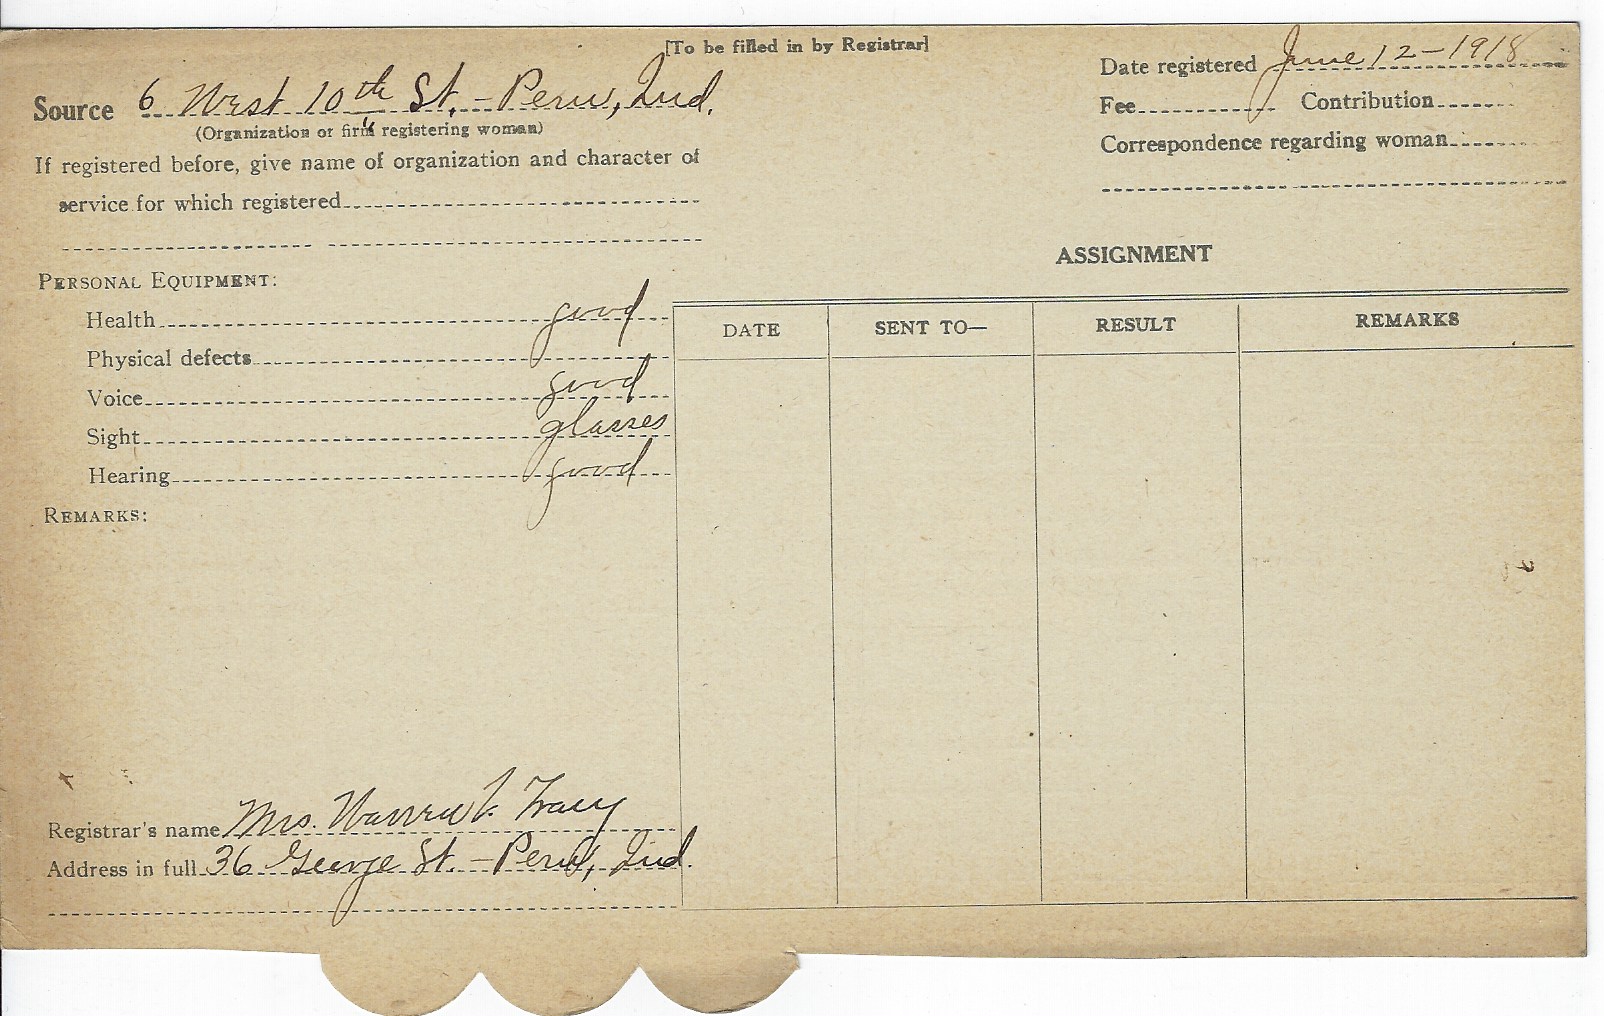 [To be filled in by Registrar]
Date registered June 12-1918
Source 6 West 10th St. - Peru, Ind.
Fee Contribution
(Organization or firm registering woman)
Correspondence regarding woman
If registered before, give name of organization and character of
service for which registered
ASSIGNMENT
PERSONAL EQUIPMENT:
Health good
Physical defects
Voice good
Sight glasses
Hearing good
DATE SENT TO— RESULT REMARKS
REMARKS:
Registrar's name Mrs. Tracy
Address in full 36 George St. - Peru, Ind.